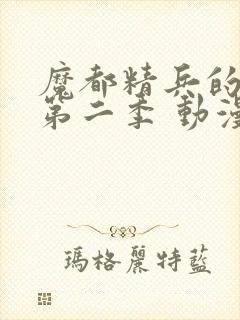 魔都精兵的
第二季 動漫
瑪格麗特藍